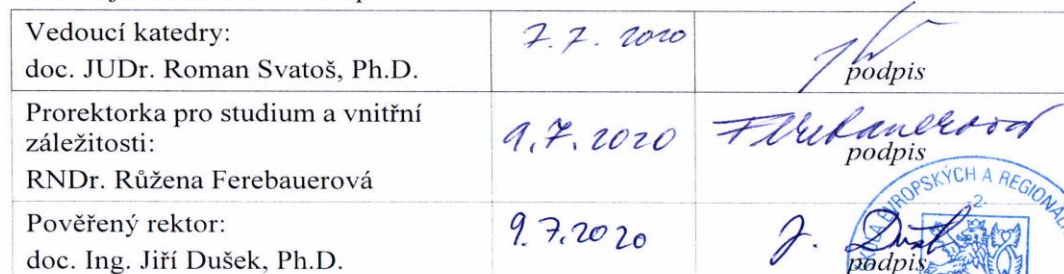 Vedoucí katedry:
doc. JUDr. Roman Svatoš, Ph.D.
7.7. 2020
podpis
Prorektorka pro studium a vnitřní
záležitosti:
RNDr. Růžena Ferebauerová
9.7.2020
Ferebauerová
podpis
Pověřený rektor:
doc. Ing. Jiří Dušek, Ph.D.
9.7.2020
J. Dušek
podpis
EVROPSKÝCH A REGIONÁLN
-2-